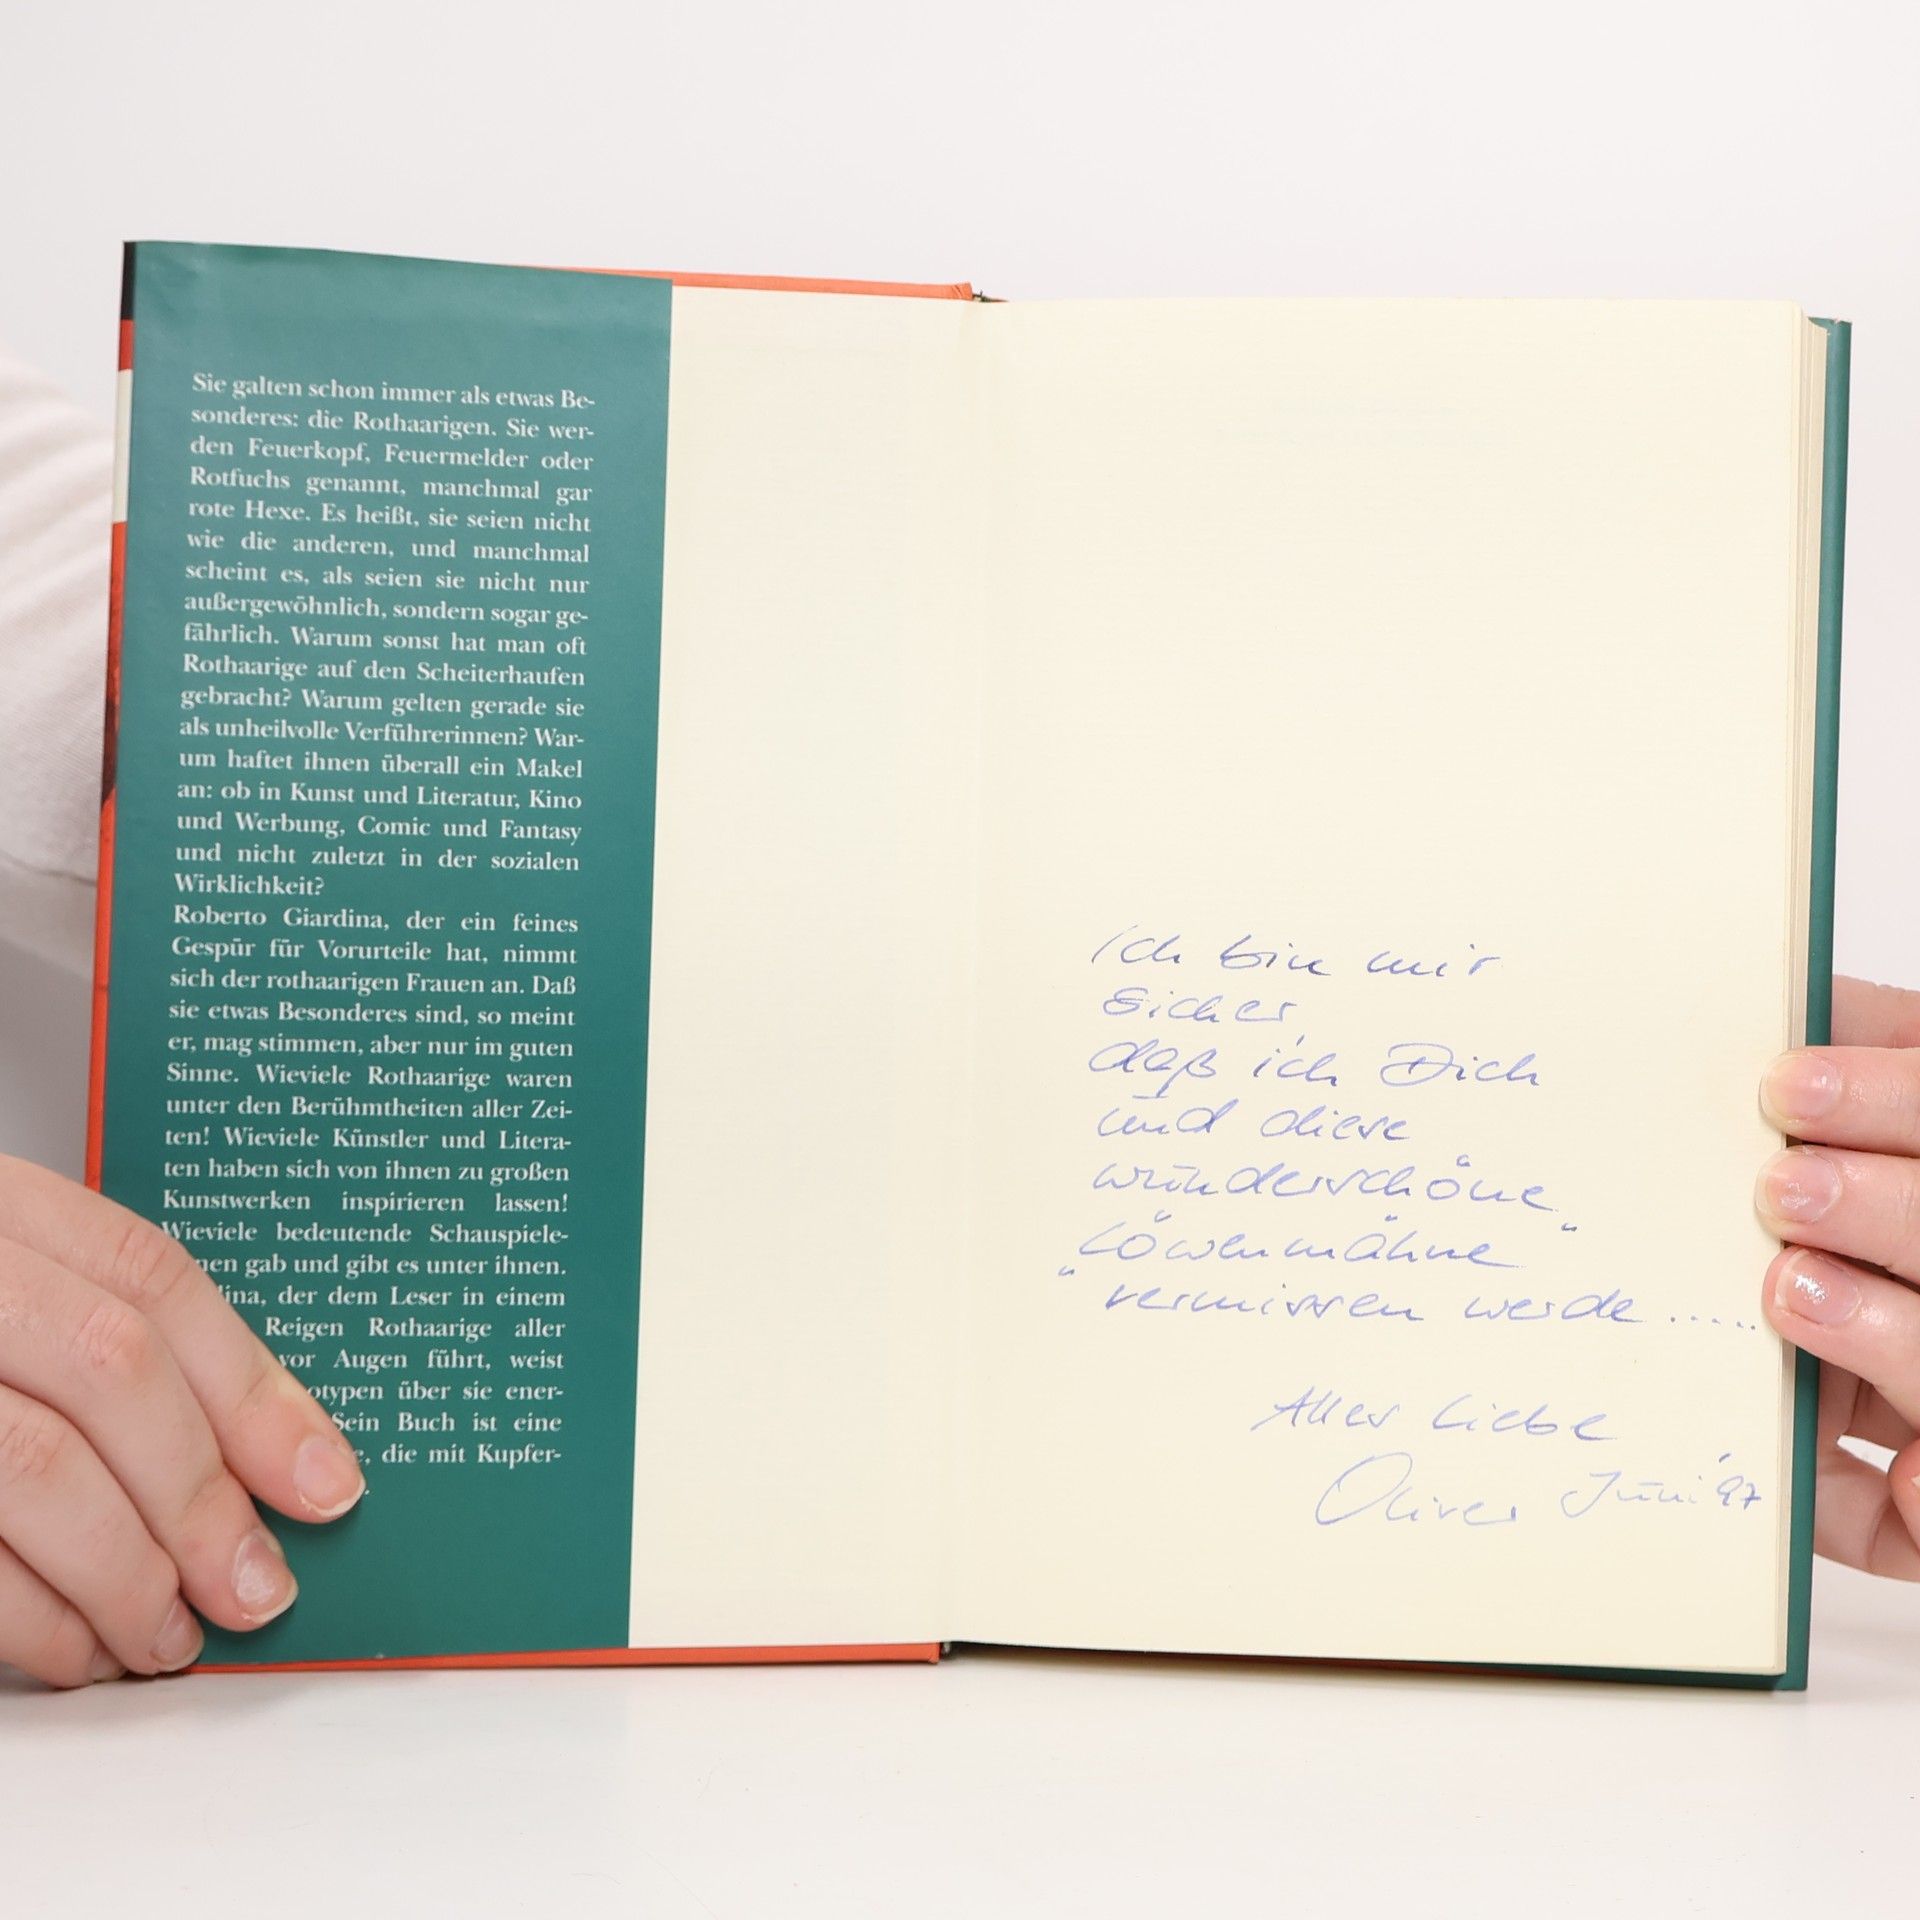 Sie galten schon immer als etwas Be-
sonderes: die Rothaarigen. Sie wer-
den Feuerkopf, Feuermelder oder
Rotfuchs genannt, manchmal gar
rote Hexe. Es heißt, sie seien nicht
wie die anderen, und manchmal
scheint es, als seien sie nicht nur
außergewöhnlich, sondern sogar ge-
fährlich. Warum sonst hat man oft
Rothaarige auf den Scheiterhaufen
gebracht? Warum gelten gerade sie
als unheilvolle Verführerinnen? War-
um haftet ihnen überall ein Makel
an: ob in Kunst und Literatur, Kino
und Werbung, Comic und Fantasy
und nicht zuletzt in der sozialen
Wirklichkeit?
Roberto Giardina, der ein feines
Gespür für Vorurteile hat, nimmt
sich der rothaarigen Frauen an. Daß
sie etwas Besonderes sind, so meint
er, mag stimmen, aber nur im guten
Sinne. Wieviele Rothaarige waren
unter den Berühmtheiten aller Zei-
ten! Wieviele Künstler und Litera-
ten haben sich von ihnen zu großen
Kunstwerken inspirieren lassen!
Wieviele bedeutende Schauspiele-
nen gab und gibt es unter ihnen.
dina, der dem Leser in einem
Reigen Rothaarige aller
vor Augen führt, weist
otypen über sie ener-
Sein Buch ist eine
e, die mit Kupfer-
.
Ich bin mir
sicher,
daß ich Dich
und diese
wunderschöne
"Löwenmähne"
vermissen werde.....
Alles Liebe
Oliver Juni '97